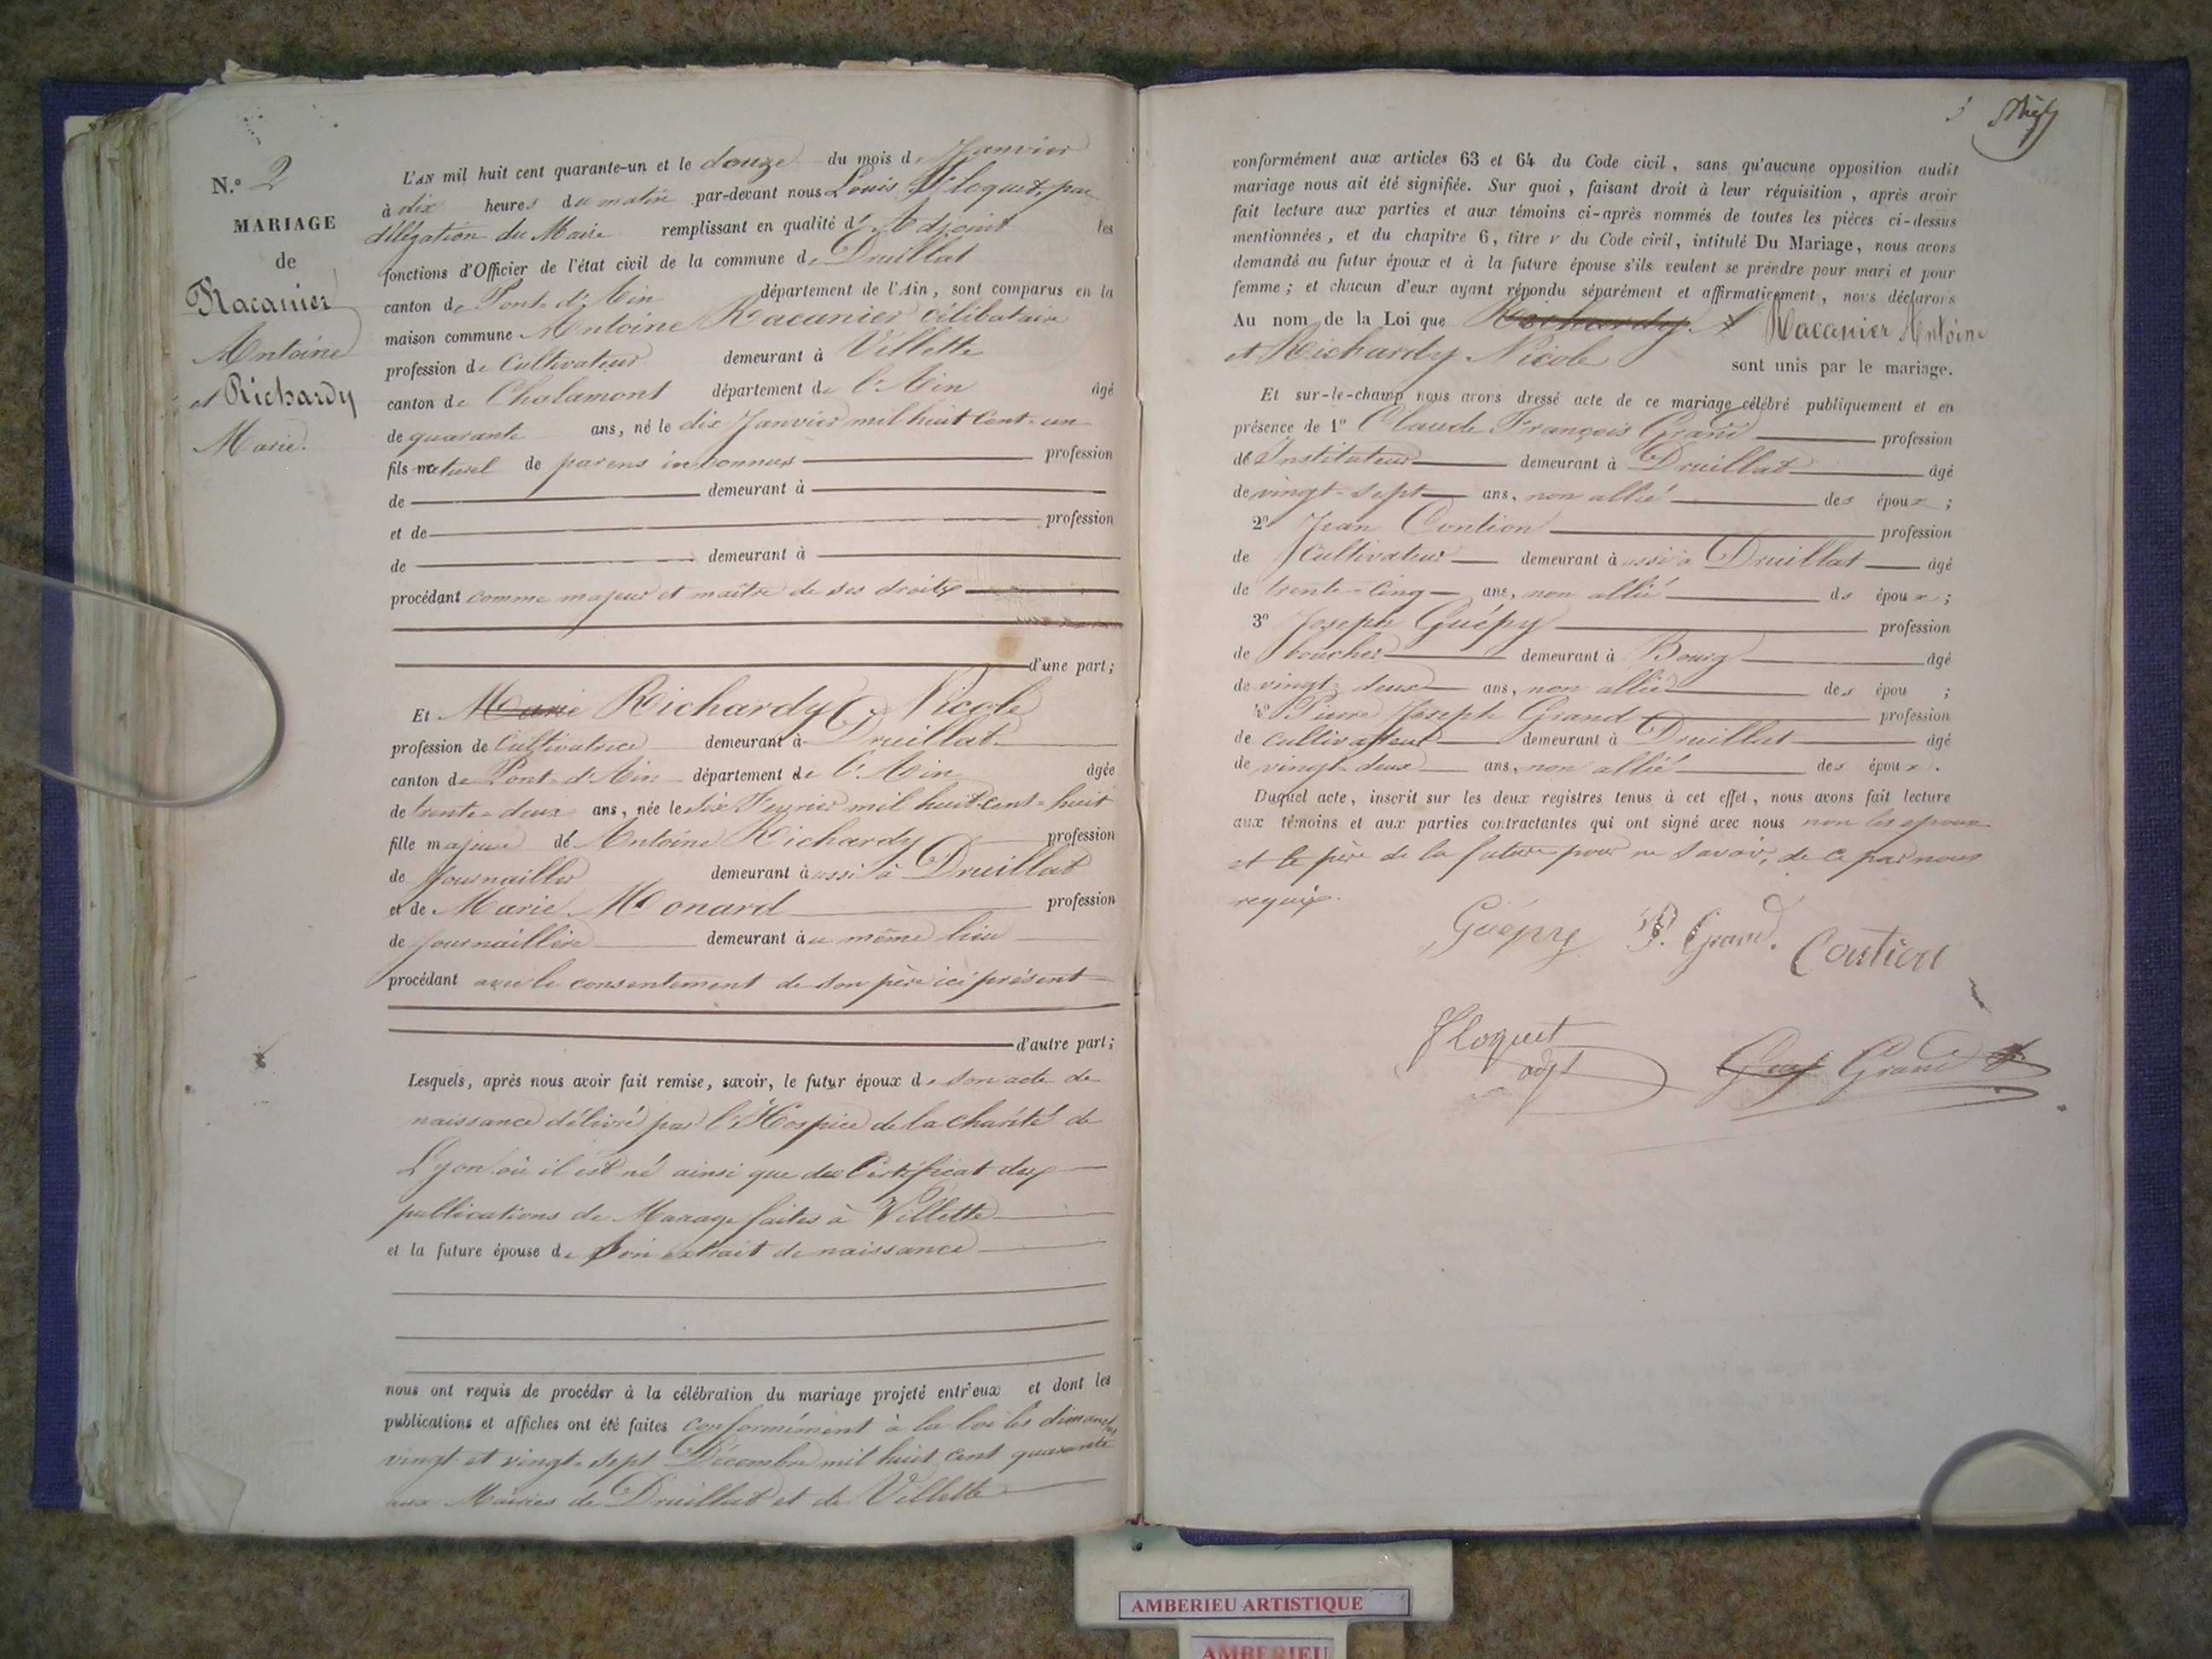 N.º 2
MARIAGE
de
Racanier
Antoine
et Richardy
Marie.
L'AN mil huit cent quarante-un et le douze du mois de Janvier
à dix heures du matin par-devant nous Louis Floquet, par
délégation du Maire remplissant en qualité d'Adjoint les
fonctions d'Officier de l'état civil de la commune de Druillat
canton de Pont-d'Ain département de l'Ain, sont comparus en la
maison commune Antoine Racanier célibataire
profession de Cultivateur demeurant à Villette
canton de Chalamont département de l'Ain âgé
de quarante ans, né le dix Janvier mil huit Cent-un
fils naturel de parens inconnus profession
de demeurant à
et de profession
de demeurant à
procédant comme majeur et maître de ses droits
d'une part;
Et Marie Richardy Nicole
profession de Cultivatrice demeurant à Druillat
canton de Pont-d'Ain département de l'Ain âgée
de trente-deux ans, née le dix Fevrier mil huit-cent-huit
fille majeure de Antoine Richardy profession
de Journailler demeurant aussi à Druillat
et de Marie Monard profession
de Journaillère demeurant au même lieu
procédant avec le consentement de son père ici présent
d'autre part;
Lesquels, après nous avoir fait remise, savoir, le futur époux de son acte de
naissance délivré par l'Hospice de la charité de
Lyon où il est né ainsi que du Certificat des
publications de Mariage faites à Villette
et la future épouse de son extrait de naissance
nous ont requis de procéder à la célébration du mariage projeté entr'eux et dont les
publications et affiches ont été faites conformément à la loi les dimanches
vingt et vingt-sept Décembre mil huit cent quarante
aux Mairies de Druillat et de Villette
3
conformément aux articles 63 et 64 du Code civil, sans qu'aucune opposition audit
mariage nous ait été signifiée. Sur quoi, faisant droit à leur réquisition, après avoir
fait lecture aux parties et aux témoins ci-après nommés de toutes les pièces ci-dessus
mentionnées, et du chapitre 6, titre v du Code civil, intitulé Du Mariage, nous avons
demandé au futur époux et à la future épouse s'ils veulent se prendre pour mari et pour
femme; et chacun d'eux ayant répondu séparément et affirmativement, nous déclarons
Au nom de la Loi que Richardy Racanier Antoine
et Richardy Nicole sont unis par le mariage.
Et sur-le-champ nous avons dressé acte de ce mariage célébré publiquement et en
présence de 1º Claude François Grand profession
de Instituteur demeurant à Druillat âgé
de vingt-sept ans, non allié des époux;
2º Jean Contion profession
de Cultivateur demeurant aussi à Druillat âgé
de trente-cinq ans, non allié ds époux;
3º Joseph Guépy profession
de boucher demeurant à Bourg âgé
de vingt-deux ans, non allié des épou ;
4º Pierre Joseph Grand profession
de cultivateur demeurant à Druillat âgé
de vingt-deux ans, non allié des époux.
Duquel acte, inscrit sur les deux registres tenus à cet effet, nous avons fait lecture
aux témoins et aux parties contractantes qui ont signé avec nous non les époux
et le père de la future pour ne savoir, de ce par nous
requis.
Guépy P. Grand. Coution
Floquet
adjt Grand
AMBERIEU ARTISTIQUE
AMBERIEU